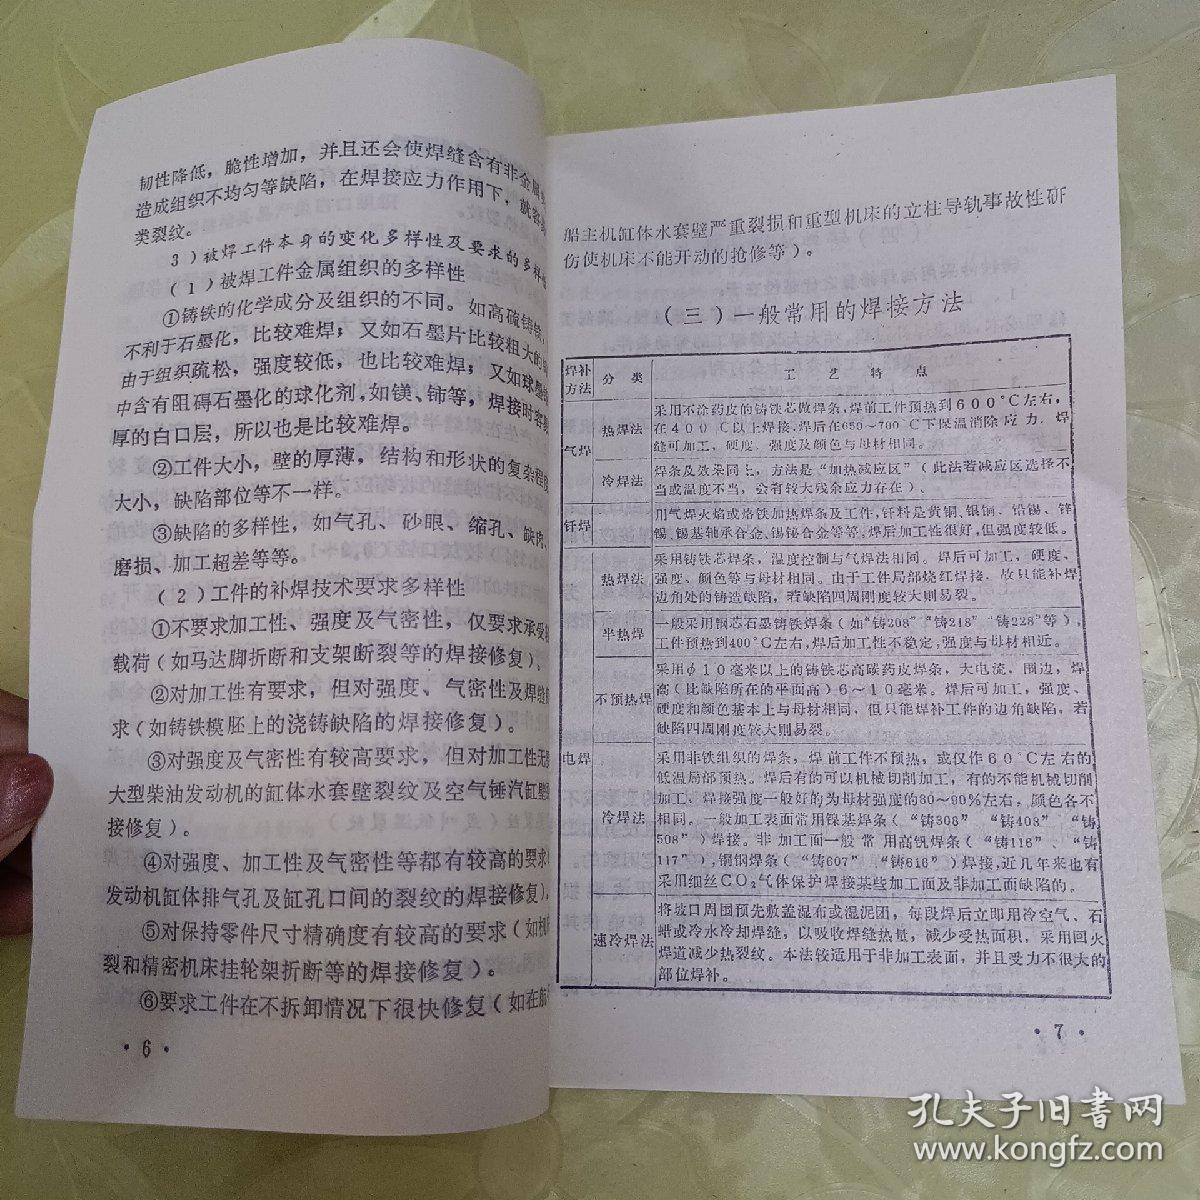 韧性降低，脆性增加，并且还会使焊缝含有非金属
造成组织不均匀等缺陷，在焊接应力作用下，就
类裂纹。
3）被焊工件本身的变化多样性及要求的多样性
（1）被焊工件金属组织的多样性
①铸铁的化学成分及组织的不同。如高硫铸铁
不利于石墨化，比较难焊；又如石墨片比较粗大的
由于组织疏松，强度较低，也比较难焊；又如球墨
中含有阻碍石墨化的球化剂，如镁、铈等，焊接时容
厚的白口层，所以也是比较难焊。
②工件大小，壁的厚薄，结构和形状的复杂程度
大小，缺陷部位等不一样。
③缺陷的多样性，如气孔、砂眼、缩孔、缺肉、
磨损、加工超差等等。
（2）工件的补焊技术要求多样性
①不要求加工性、强度及气密性，仅要求承受
载荷（如马达脚折断和支架断裂等的焊接修复）。
②对加工性有要求，但对强度、气密性及焊缝
求（如铸铁模胚上的浇铸缺陷的焊接修复）。
③对强度及气密性有较高要求，但对加工性无
大型柴油发动机的缸体水套壁裂纹及空气锤汽缸壁
接修复）。
④对强度、加工性及气密性等都有较高的要求
发动机缸体排气孔及缸孔口间的裂纹的焊接修复）。
⑤对保持零件尺寸精确度有较高的要求（如机
裂和精密机床挂轮架折断等的焊接修复）。
⑥要求工件在不拆卸情况下很快修复（如在
·6·
船主机缸体水套壁严重裂损和重型机床的立柱导轨事故性研
伤使机床不能开动的抢修等）。
（三）一般常用的焊接方法
焊补方法 分类 工艺特点
气焊
热焊法
采用不涂药皮的铸铁芯做焊条，焊前工件预热到600°C左右，
在400°C以上焊接，焊后在650～700°C下保温消除应力，焊
缝可加工，硬度、强度及颜色与母材相同。
冷焊法
焊条及效果同上，方法是“加热减应区”（此法若减应区选择不
当或温度不当，会有较大残余应力存在）。
钎焊
用气焊火焰或烙铁加热焊条及工件，钎料是黄铜、银铜、铅锡、锌
锡、锡基轴承合金、锡铋合金等等，焊后加工性很好，但强度较低。
电焊
热焊法
采用铸铁芯焊条，温度控制与气焊法相同。焊后可加工，硬度、
强度、颜色等与母材相同。由于工件局部烧红焊接，故只能补焊
边角处的铸造缺陷，若缺陷四周刚度较大则易裂。
半热焊
一般采用钢芯石墨铸铁焊条（如“铸208”“铸248”“铸228”等），
工件预热到400°C左右，焊后加工性不稳定，强度与母材相近。
不预热焊
采用φ10毫米以上的铸铁芯高碳药皮焊条，大电流，围边，焊
高（比缺陷所在的平面高）6～10毫米。焊后可加工，强度、
硬度和颜色基本上与母材相同，但只能焊补工件的边角缺陷，若
缺陷四周刚度较大则易裂。
冷焊法
采用非铁组织的焊条，焊前工件不预热，或仅作60°C左右的
低温局部预热。焊后有的可以机械切削加工，有的不能机械切削
加工，焊接强度一般好的为母材强度的80～90%左右，颜色各不
相同。一般加工表面常用镍基焊条（“铸308”“铸408”“铸
508”）焊接。非加工面一般常用高钒焊条（“铸116”、“铸
117”），铜钢焊条（“铸607”、“铸616”）焊接，近几年来也有
采用细丝CO₂气体保护焊接某些加工面及非加工面缺陷的。
速冷焊法
将坡口周围预先敷盖湿布或湿泥团，每段焊后立即用冷空气、石
蜡或冷水冷却焊缝，以吸收焊缝热量，减少受热面积，采用回火
焊道减少热裂纹。本法较适用于非加工表面，并且受力不很大的
部位焊补。
·7·
孔夫子旧书网
www.kongfz.com